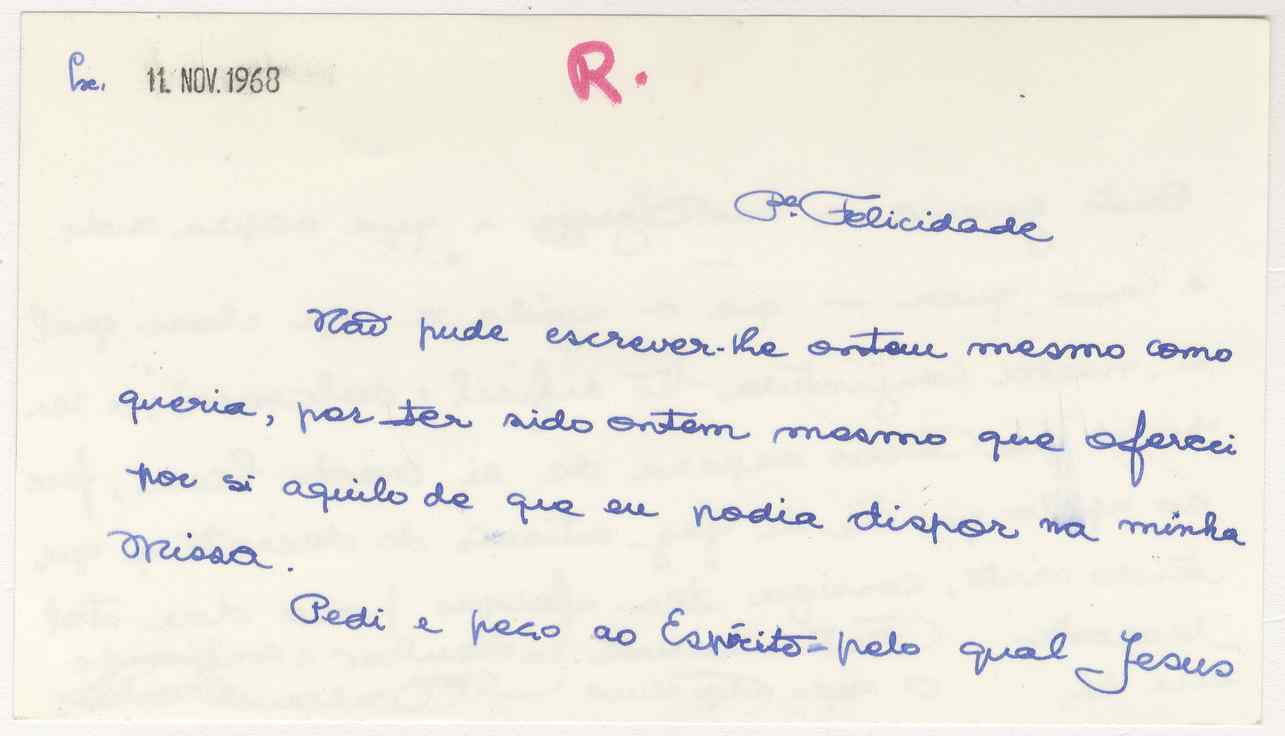 11. NOV. 1968
R.
Pe. Felicidade
Não pude escrever-lhe ontem mesmo como
queria, por ter sido ontem mesmo que ofereci
por si aquilo de que eu podia dispor na minha
Missa.
Pedi e peço ao Espírito - pelo qual Jesus